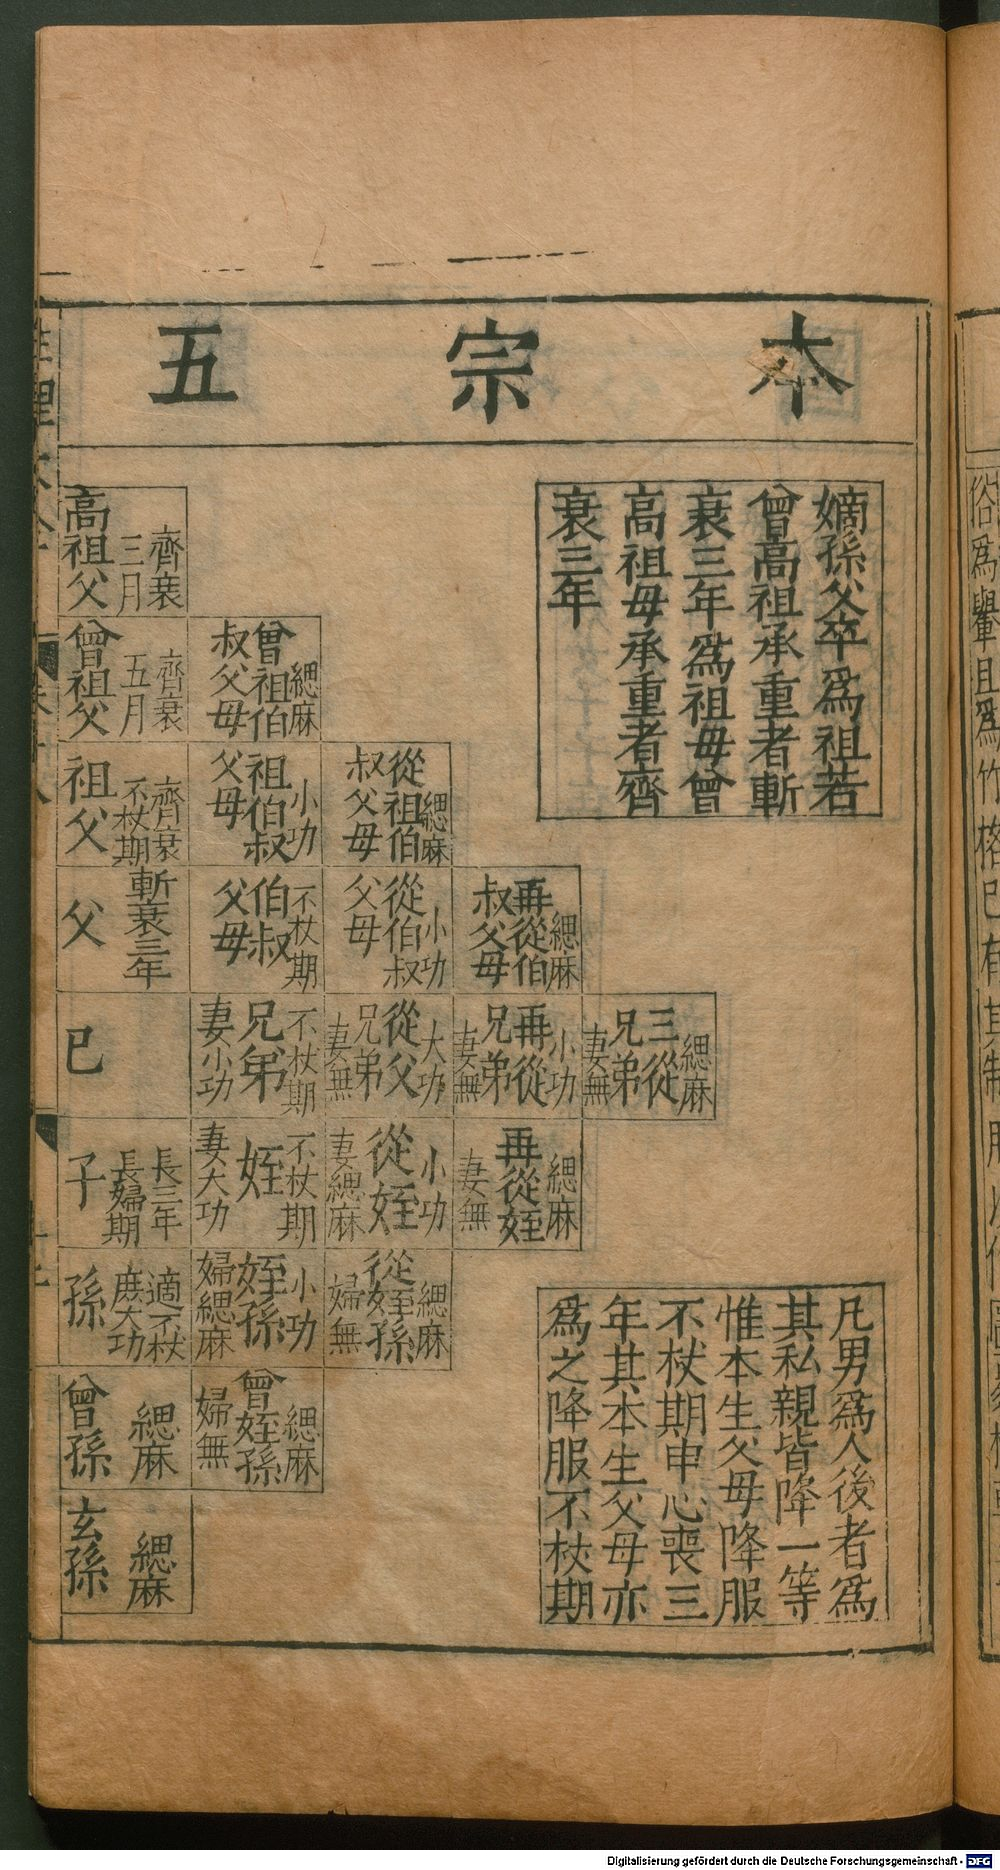 本宗五
嫡孫父卒爲祖若
曾高祖承重者斬
衰三年爲祖母曾
高祖母承重者齊
衰三年
凡男爲人後者爲
其私親皆降一等
惟本生父母降服
不杖期申心喪三
年其本生父母亦
爲之降服不杖期
齊衰
三月
高祖父
緦麻
曾祖伯
叔父母
齊衰
五月
曾祖父
緦麻
從祖伯
叔父母
小功
祖伯叔
父母
齊衰
不杖期
祖父
緦麻
再從伯
叔父母
小功
從伯叔
父母
不杖期
伯叔
父母
斬衰三年
父
緦麻
三從
兄弟
妻無
小功
再從
兄弟
妻無
大功
從父
兄弟
妻無
不杖期
兄弟
妻小功
已
緦麻
再從姪
妻無
小功
從姪
妻緦麻
不杖期
姪
妻大功
長三年
長婦期
子
緦麻
從姪孫
婦無
小功
姪孫
婦緦麻
適不杖
庶大功
孫
緦麻
曾姪孫
婦無
緦麻
曾孫
緦麻
玄孫
俗爲轝且爲竹格已有其制
Digitalisierung gefördert durch die Deutsche Forschungsgemeinschaft - DFG